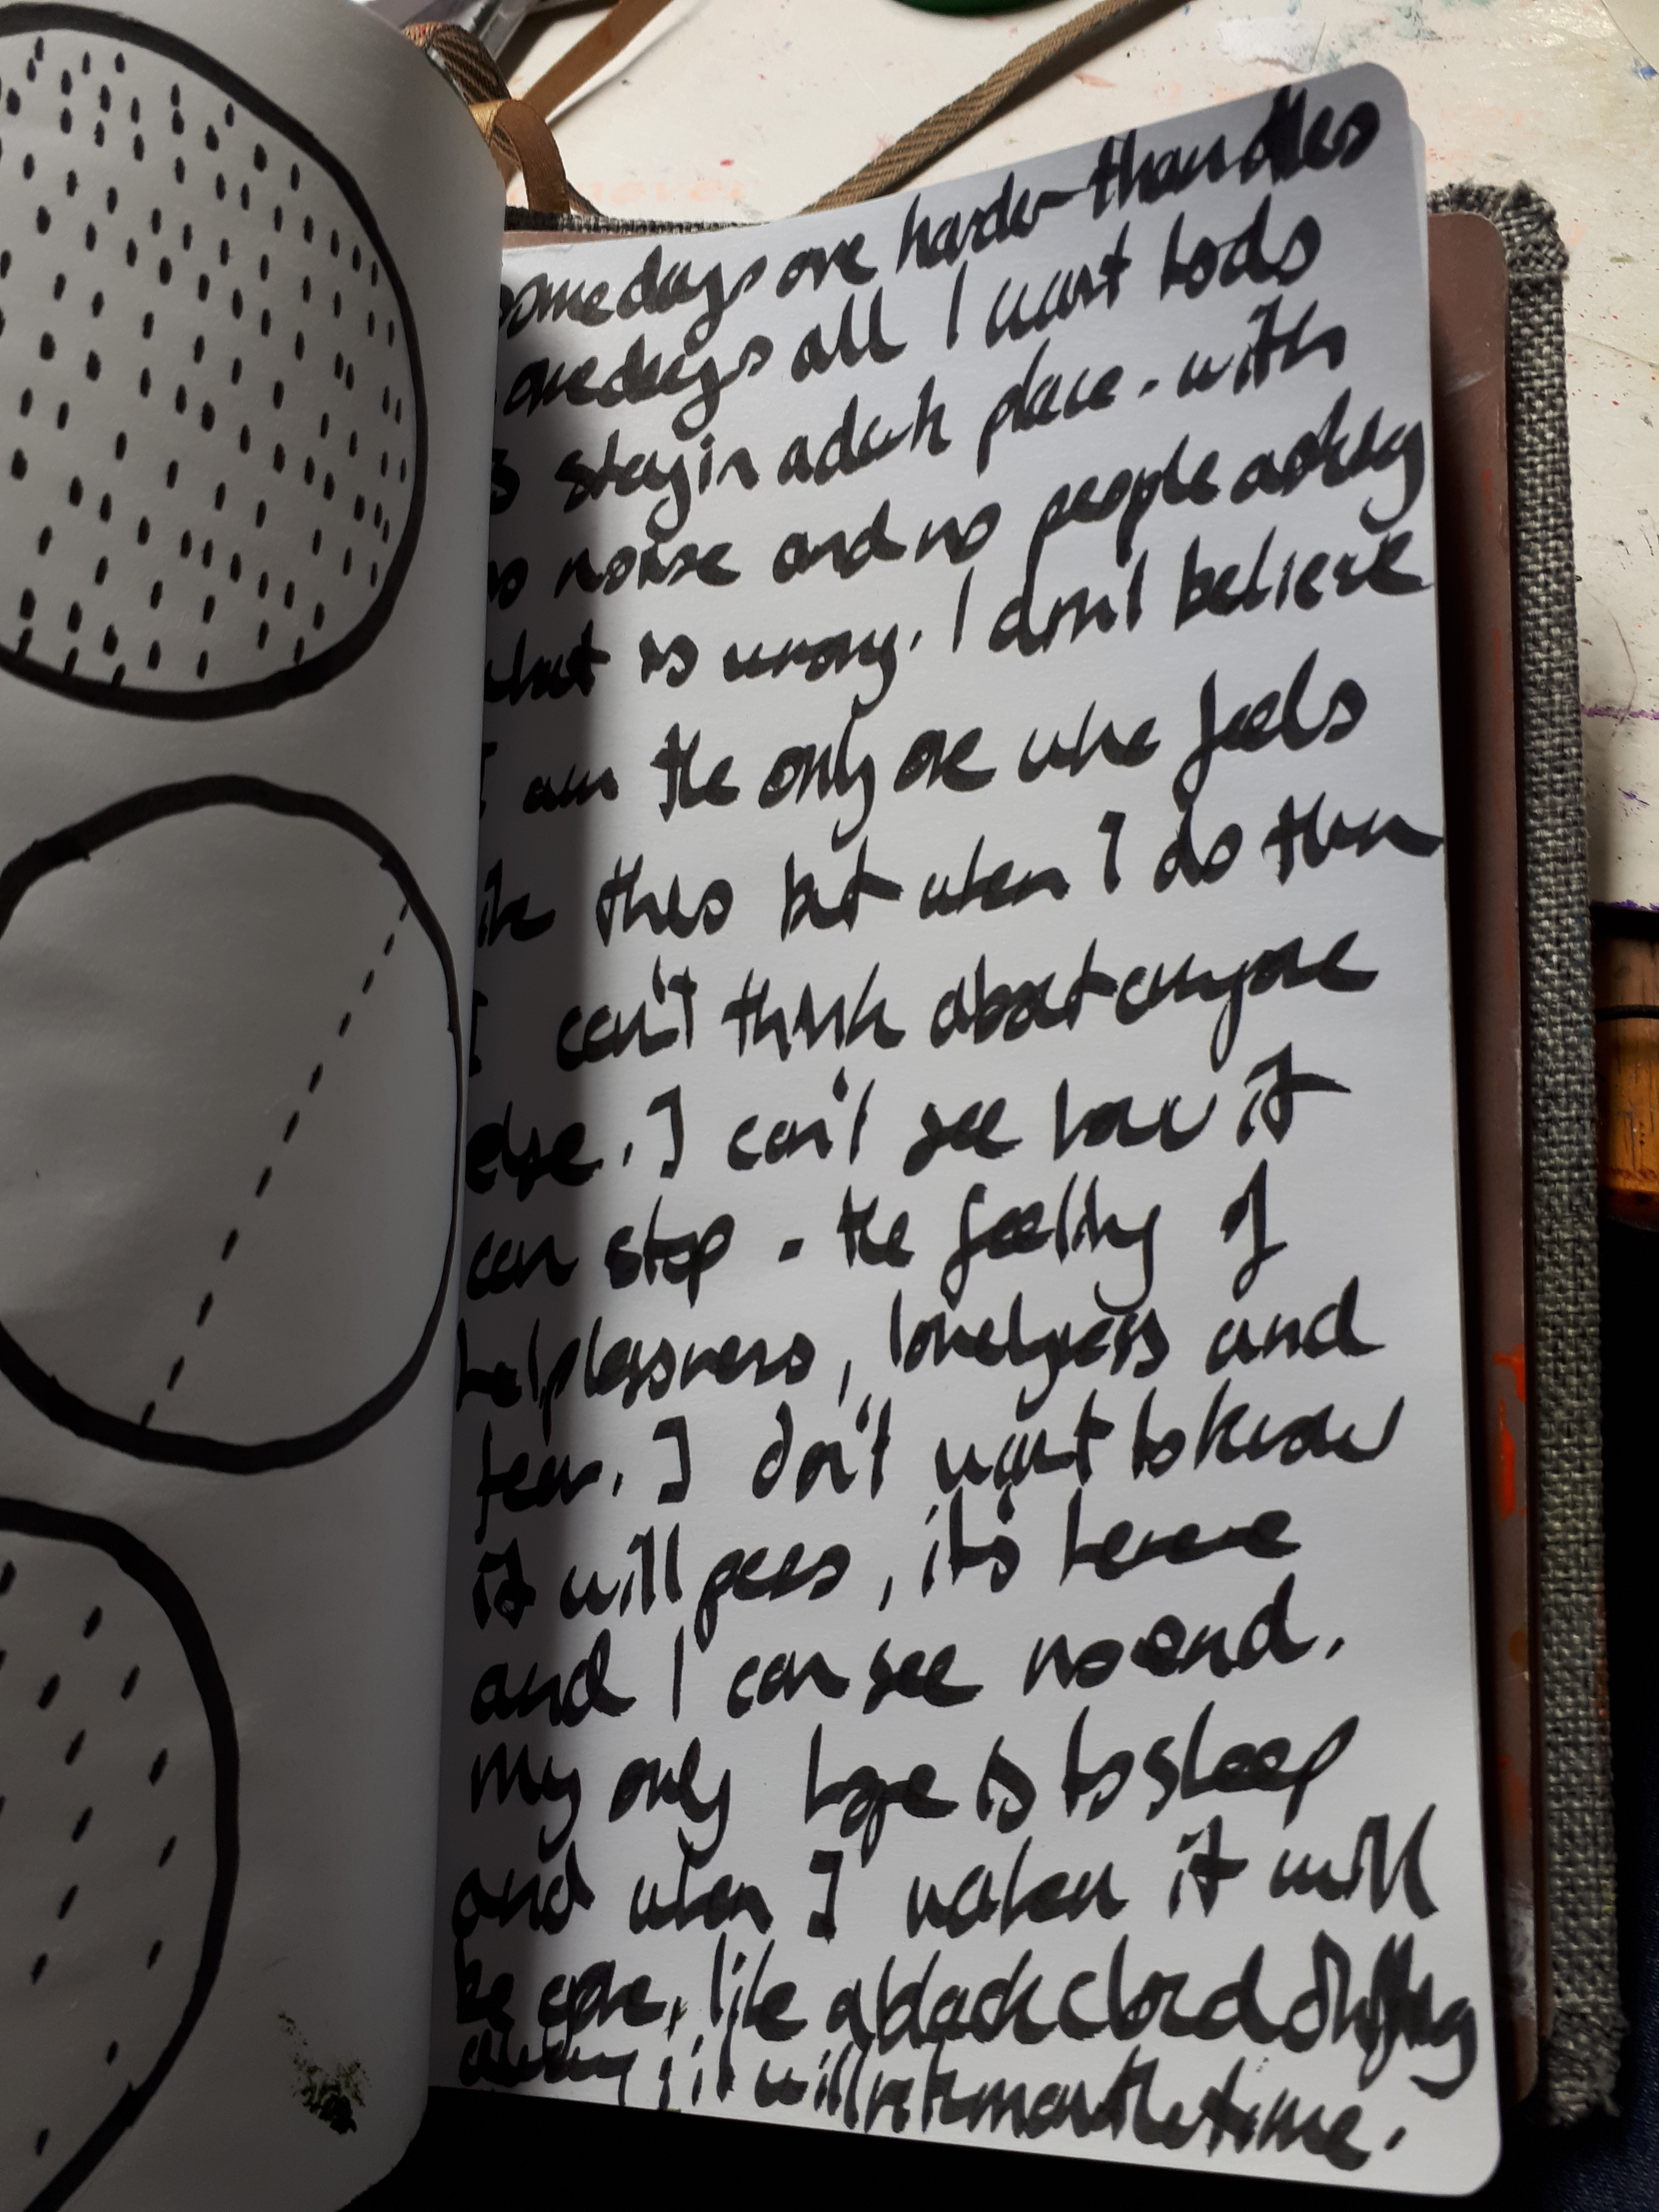 some days are harder than others
some days all I want to do
is stay in a dark place - with
no noise and no people asking
what is wrong. I don't believe
I am the only one who feels
like this but when I do then
I can't think about anyone
else. I can't see how it
can stop - the feeling of
helplessness, loneliness and
fear. I don't want to know
it will pass, it's here
and I can see no end.
My only hope is to sleep
and when I waken it will
be gone, like a black cloud drifting
away; it will return another time.